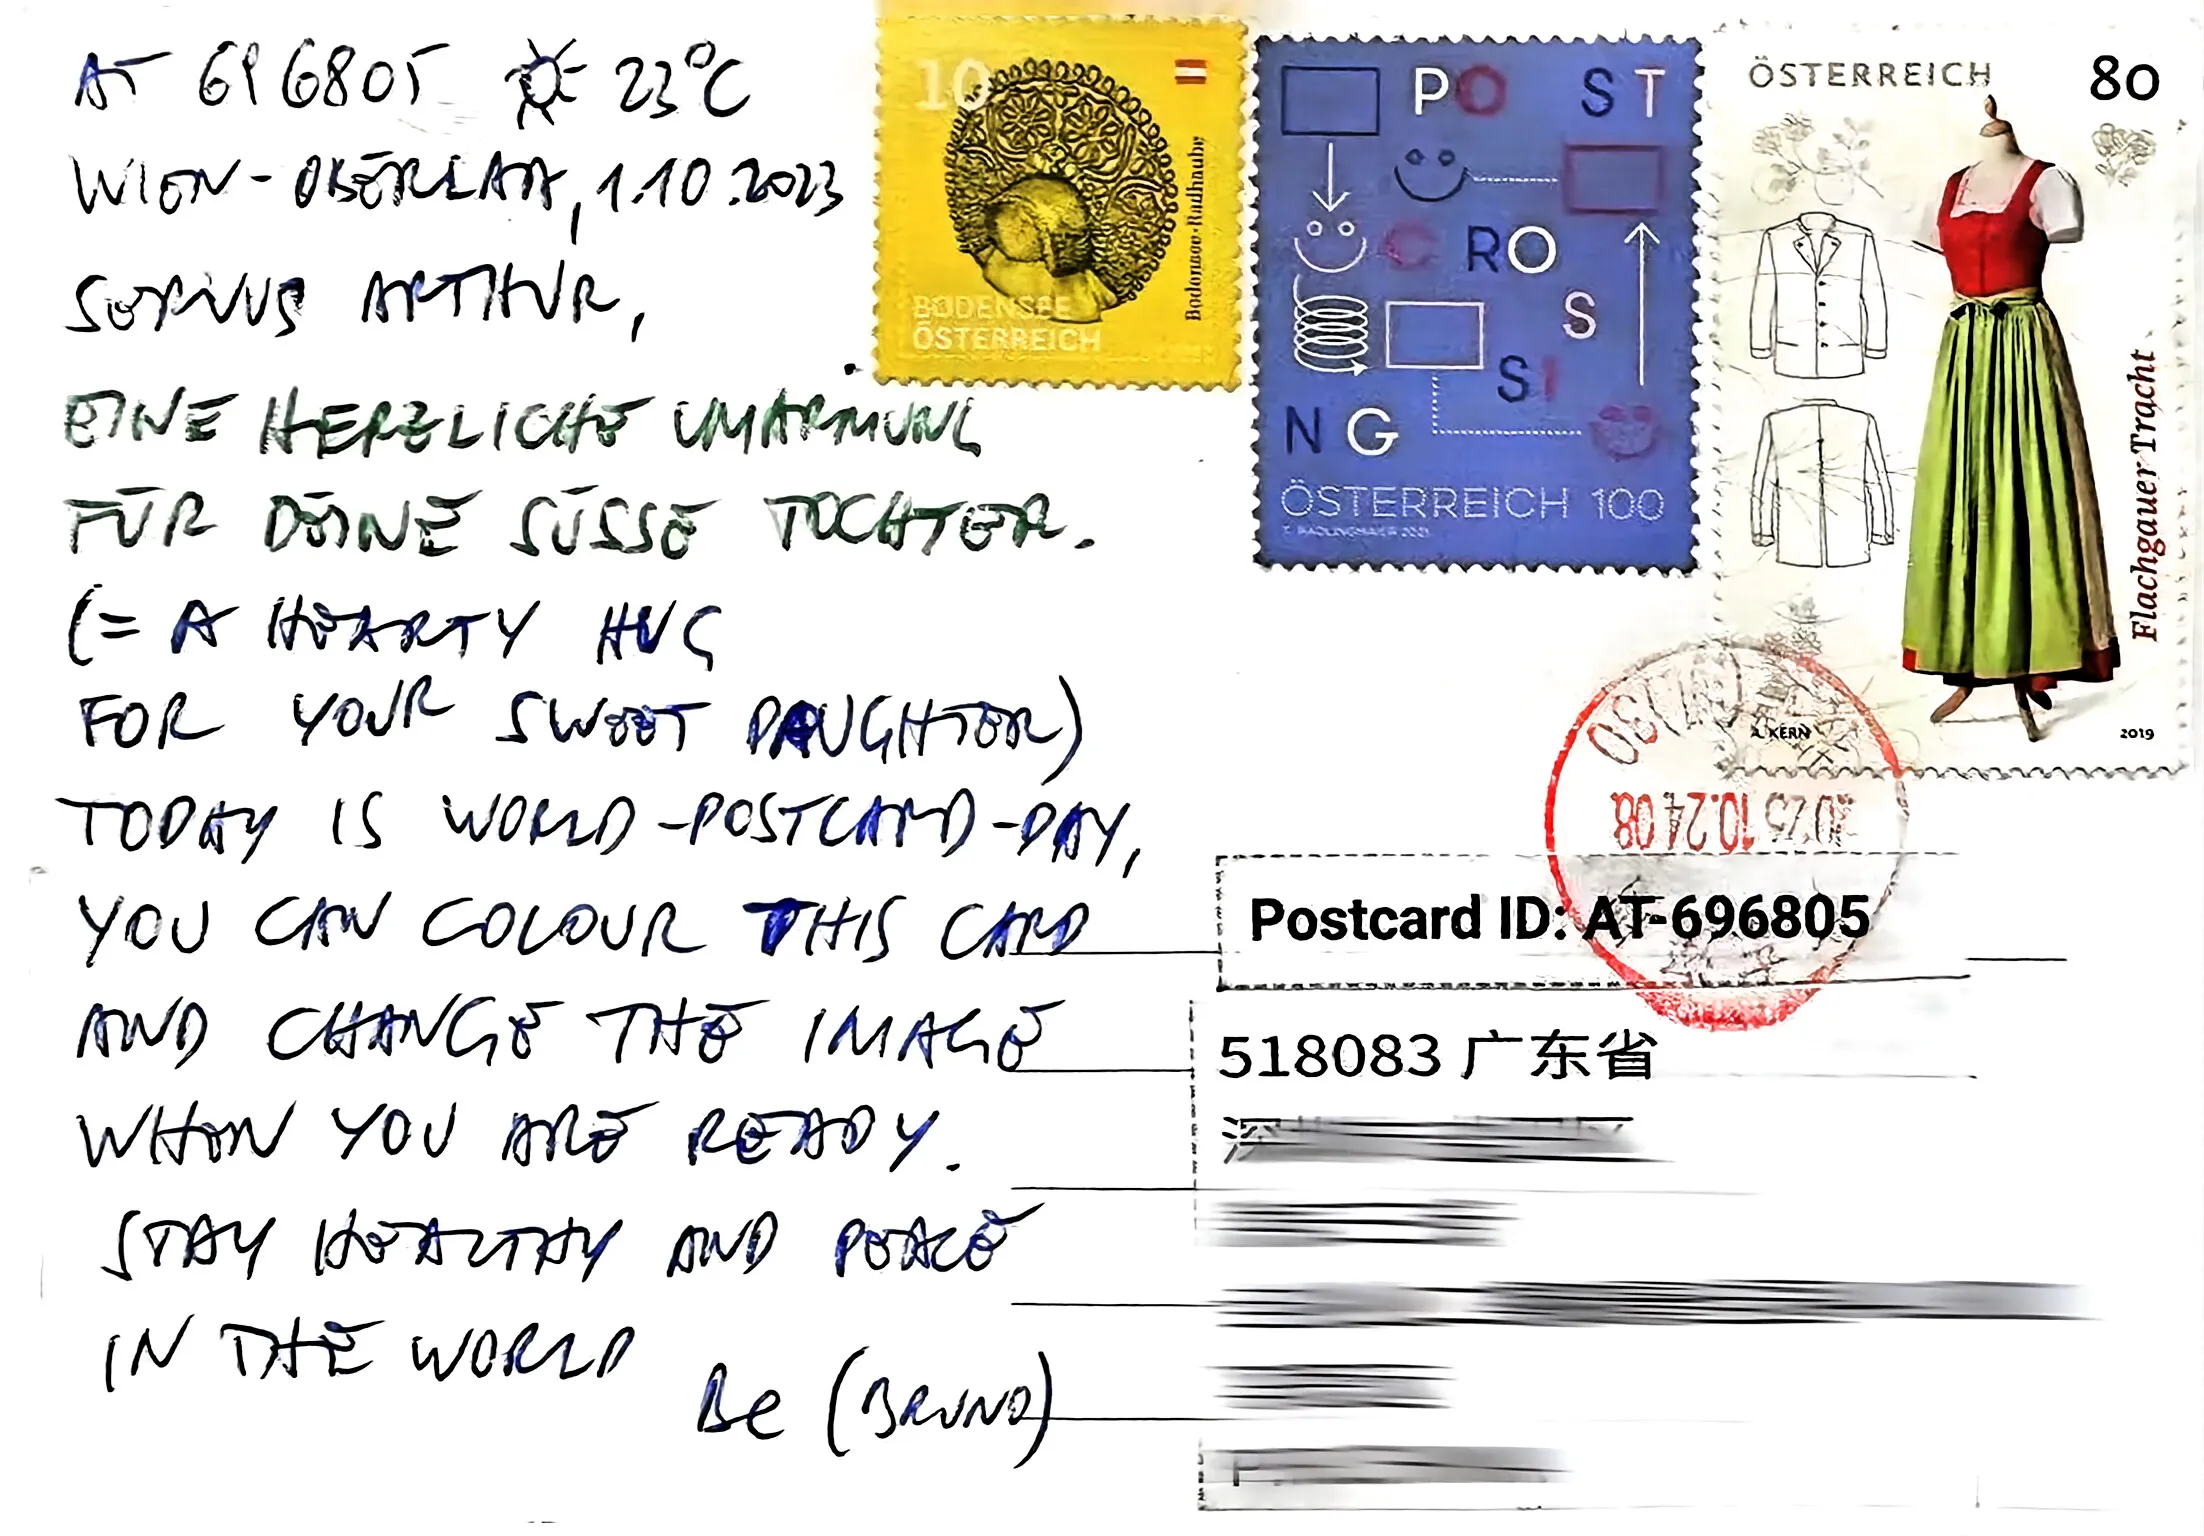 AT 696805 ☼ 23°C
WIEN-OBERLAA, 1.10.2023
SERVUS ARTHUR,
EINE HERZLICHE UMARMUNG
FÜR DEINE SÜSSE TOCHTER.
(= A HEARTY HUG
FOR YOUR SWEET DAUGHTER)
TODAY IS WORLD-POSTCARD-DAY,
YOU CAN COLOUR THIS CARD
AND CHANGE THE IMAGE
WHEN YOU ARE READY.
STAY HEALTHY AND PEACE
IN THE WORLD
Be (BRUNO)
10
Bodensee-Radhaube
BODENSEE
ÖSTERREICH
PO ST
C RO
S
SI
NG
ÖSTERREICH 100
ÖSTERREICH 80
Flachgauer Tracht
A. KERN 2019
10.24 08
Postcard ID: AT-696805
518083 广东省
深